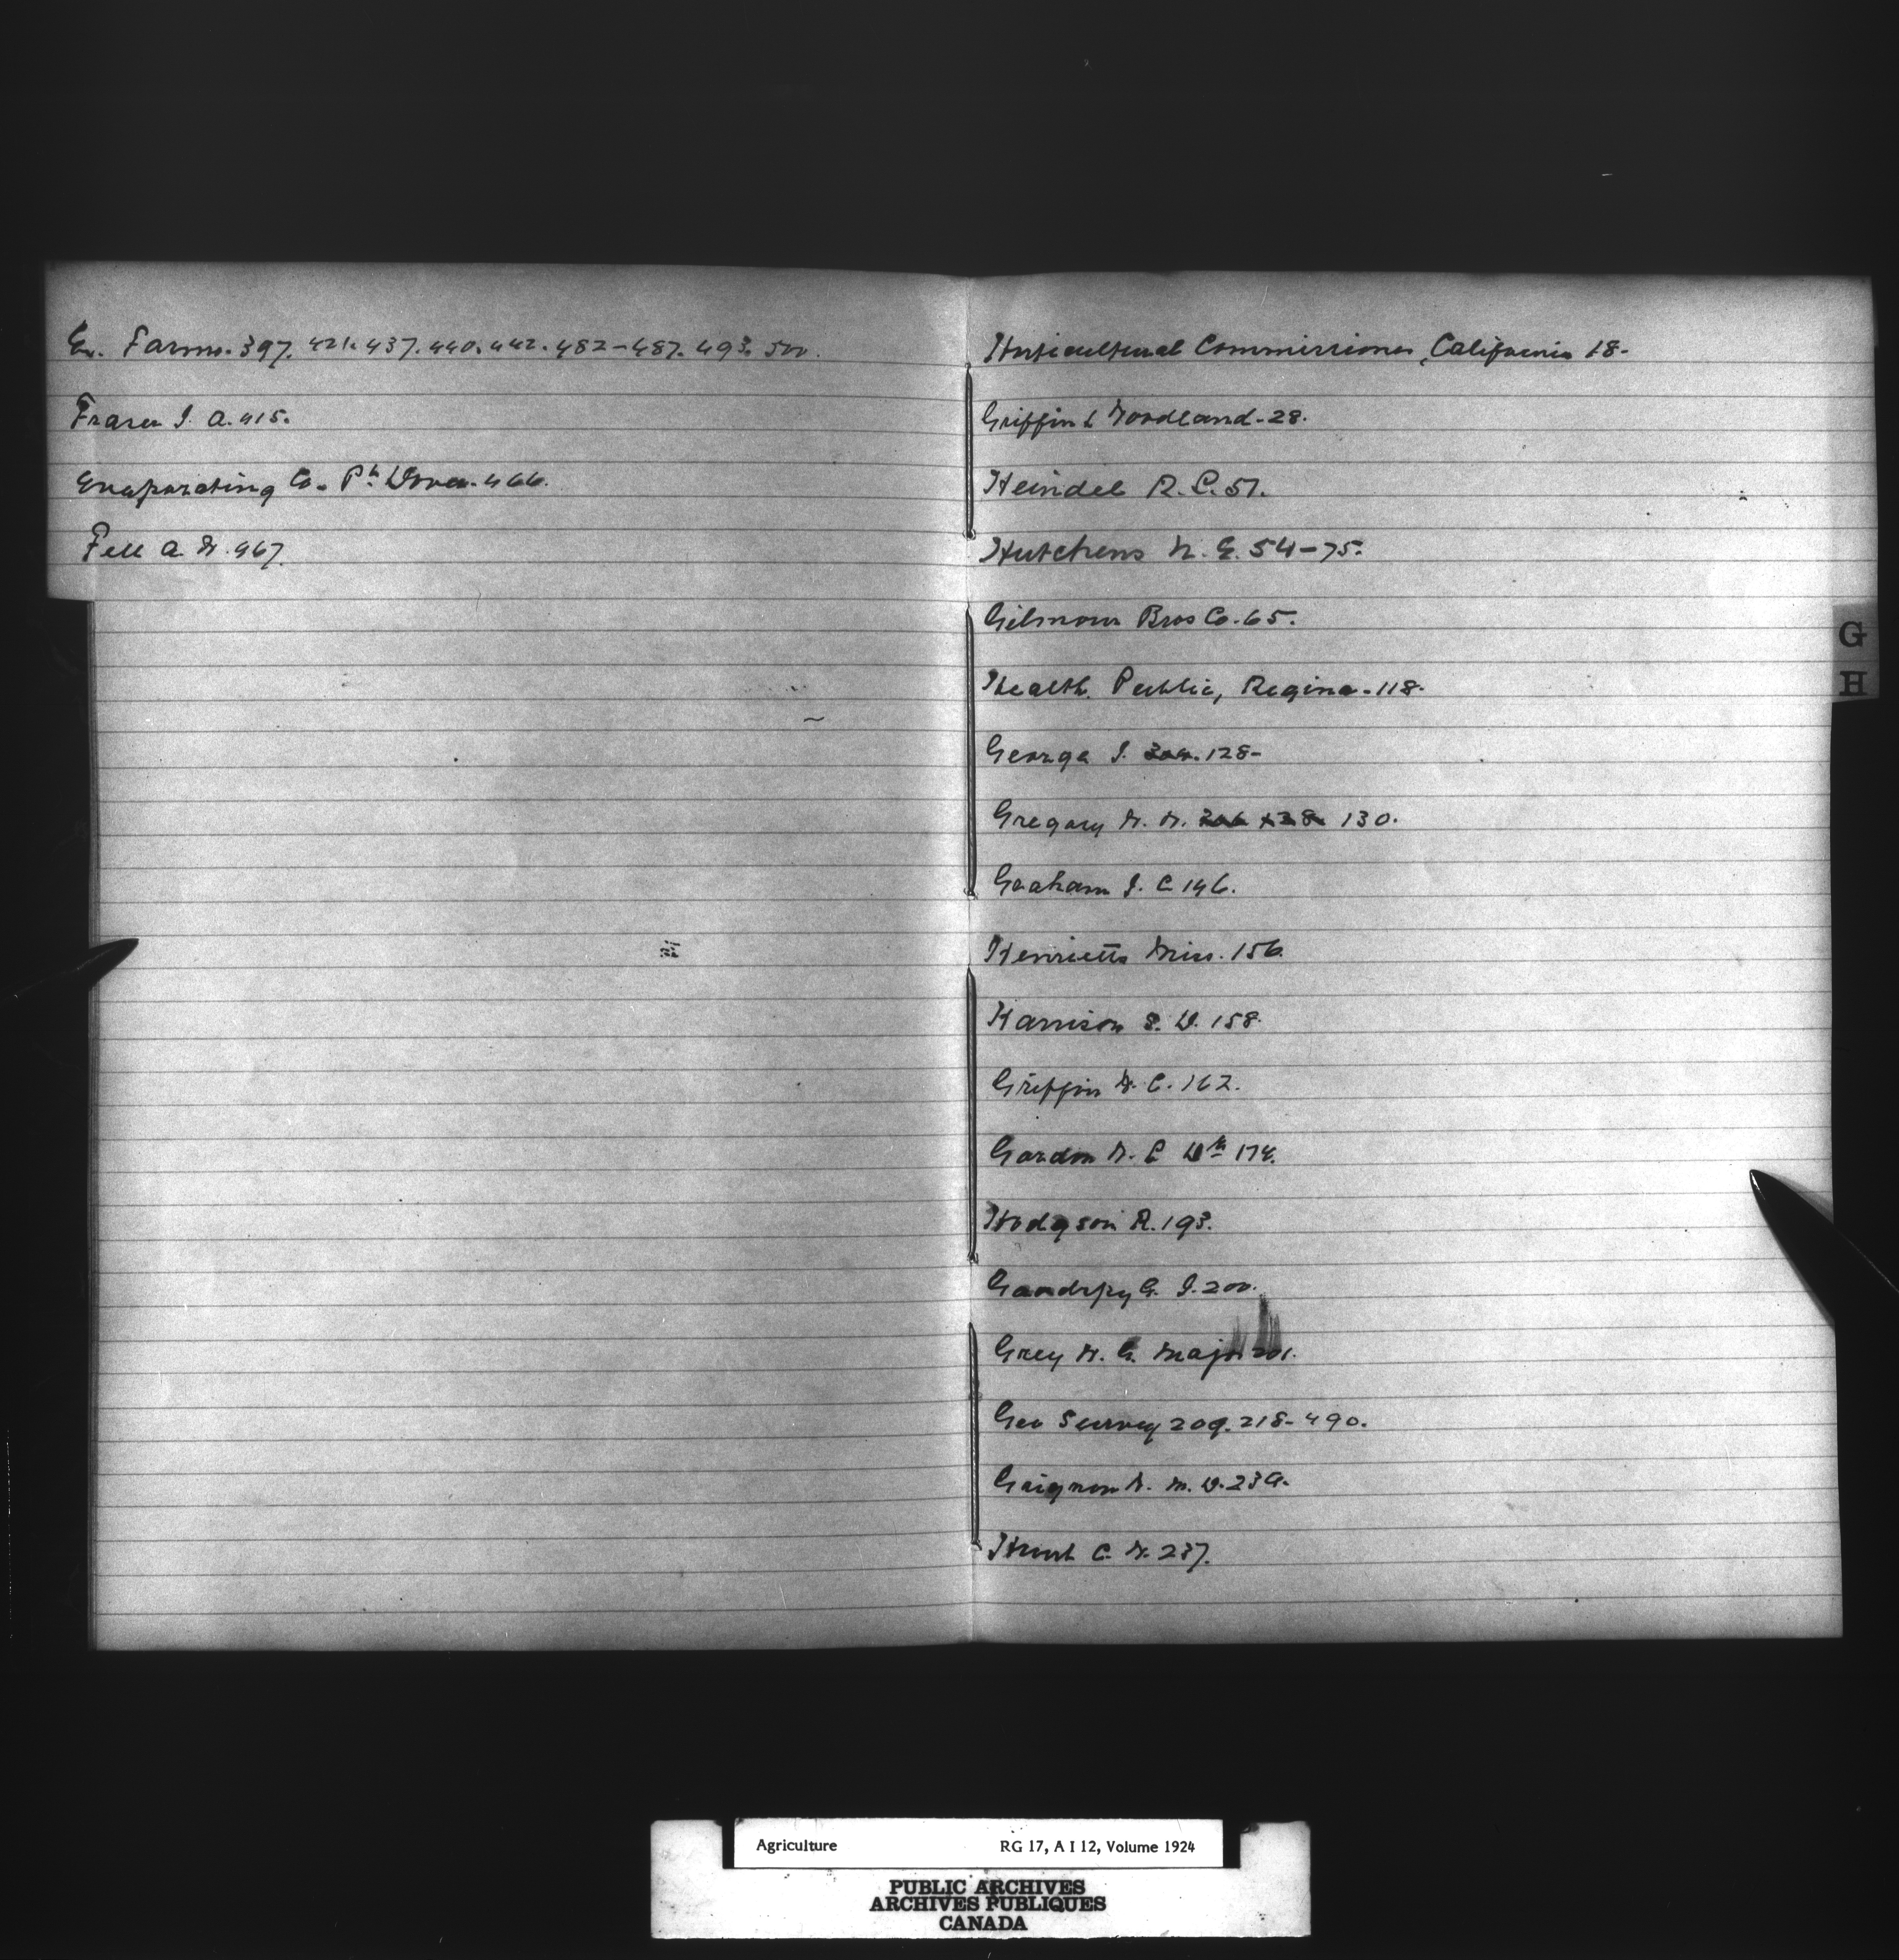 Ex. Farms. 397. 421. 437. 440. 442. 482-487. 493. 500.
Fraser J. A. 415.
Evaporating Co. Pt Dover. 466.
Fell A. W. 467.
Horticultural Commissioner, California 18-
Griffin & Woodland-28.
Heindel R. C. 51.
Hutchens N. E. 54-75.
Gilmour Bros Co. 65.
Health Public, Regina-118.
George J. 128-
Gregory W. W. 130.
Graham J. C. 146.
Henrietta Miss. 156.
Harrison S. D. 158.
Griffin W. C. 162.
Gordon W. C. Dr 174.
Hodgson R. 193.
G. J. 200.
Grey W. G. Major 201.
Geo Survey 209. 218-490.
Gaignon W. M. D. 234.
Hunt C. W. 237.
G
H
Agriculture RG 17, A I 12, Volume 1924
PUBLIC ARCHIVES
ARCHIVES PUBLIQUES
CANADA